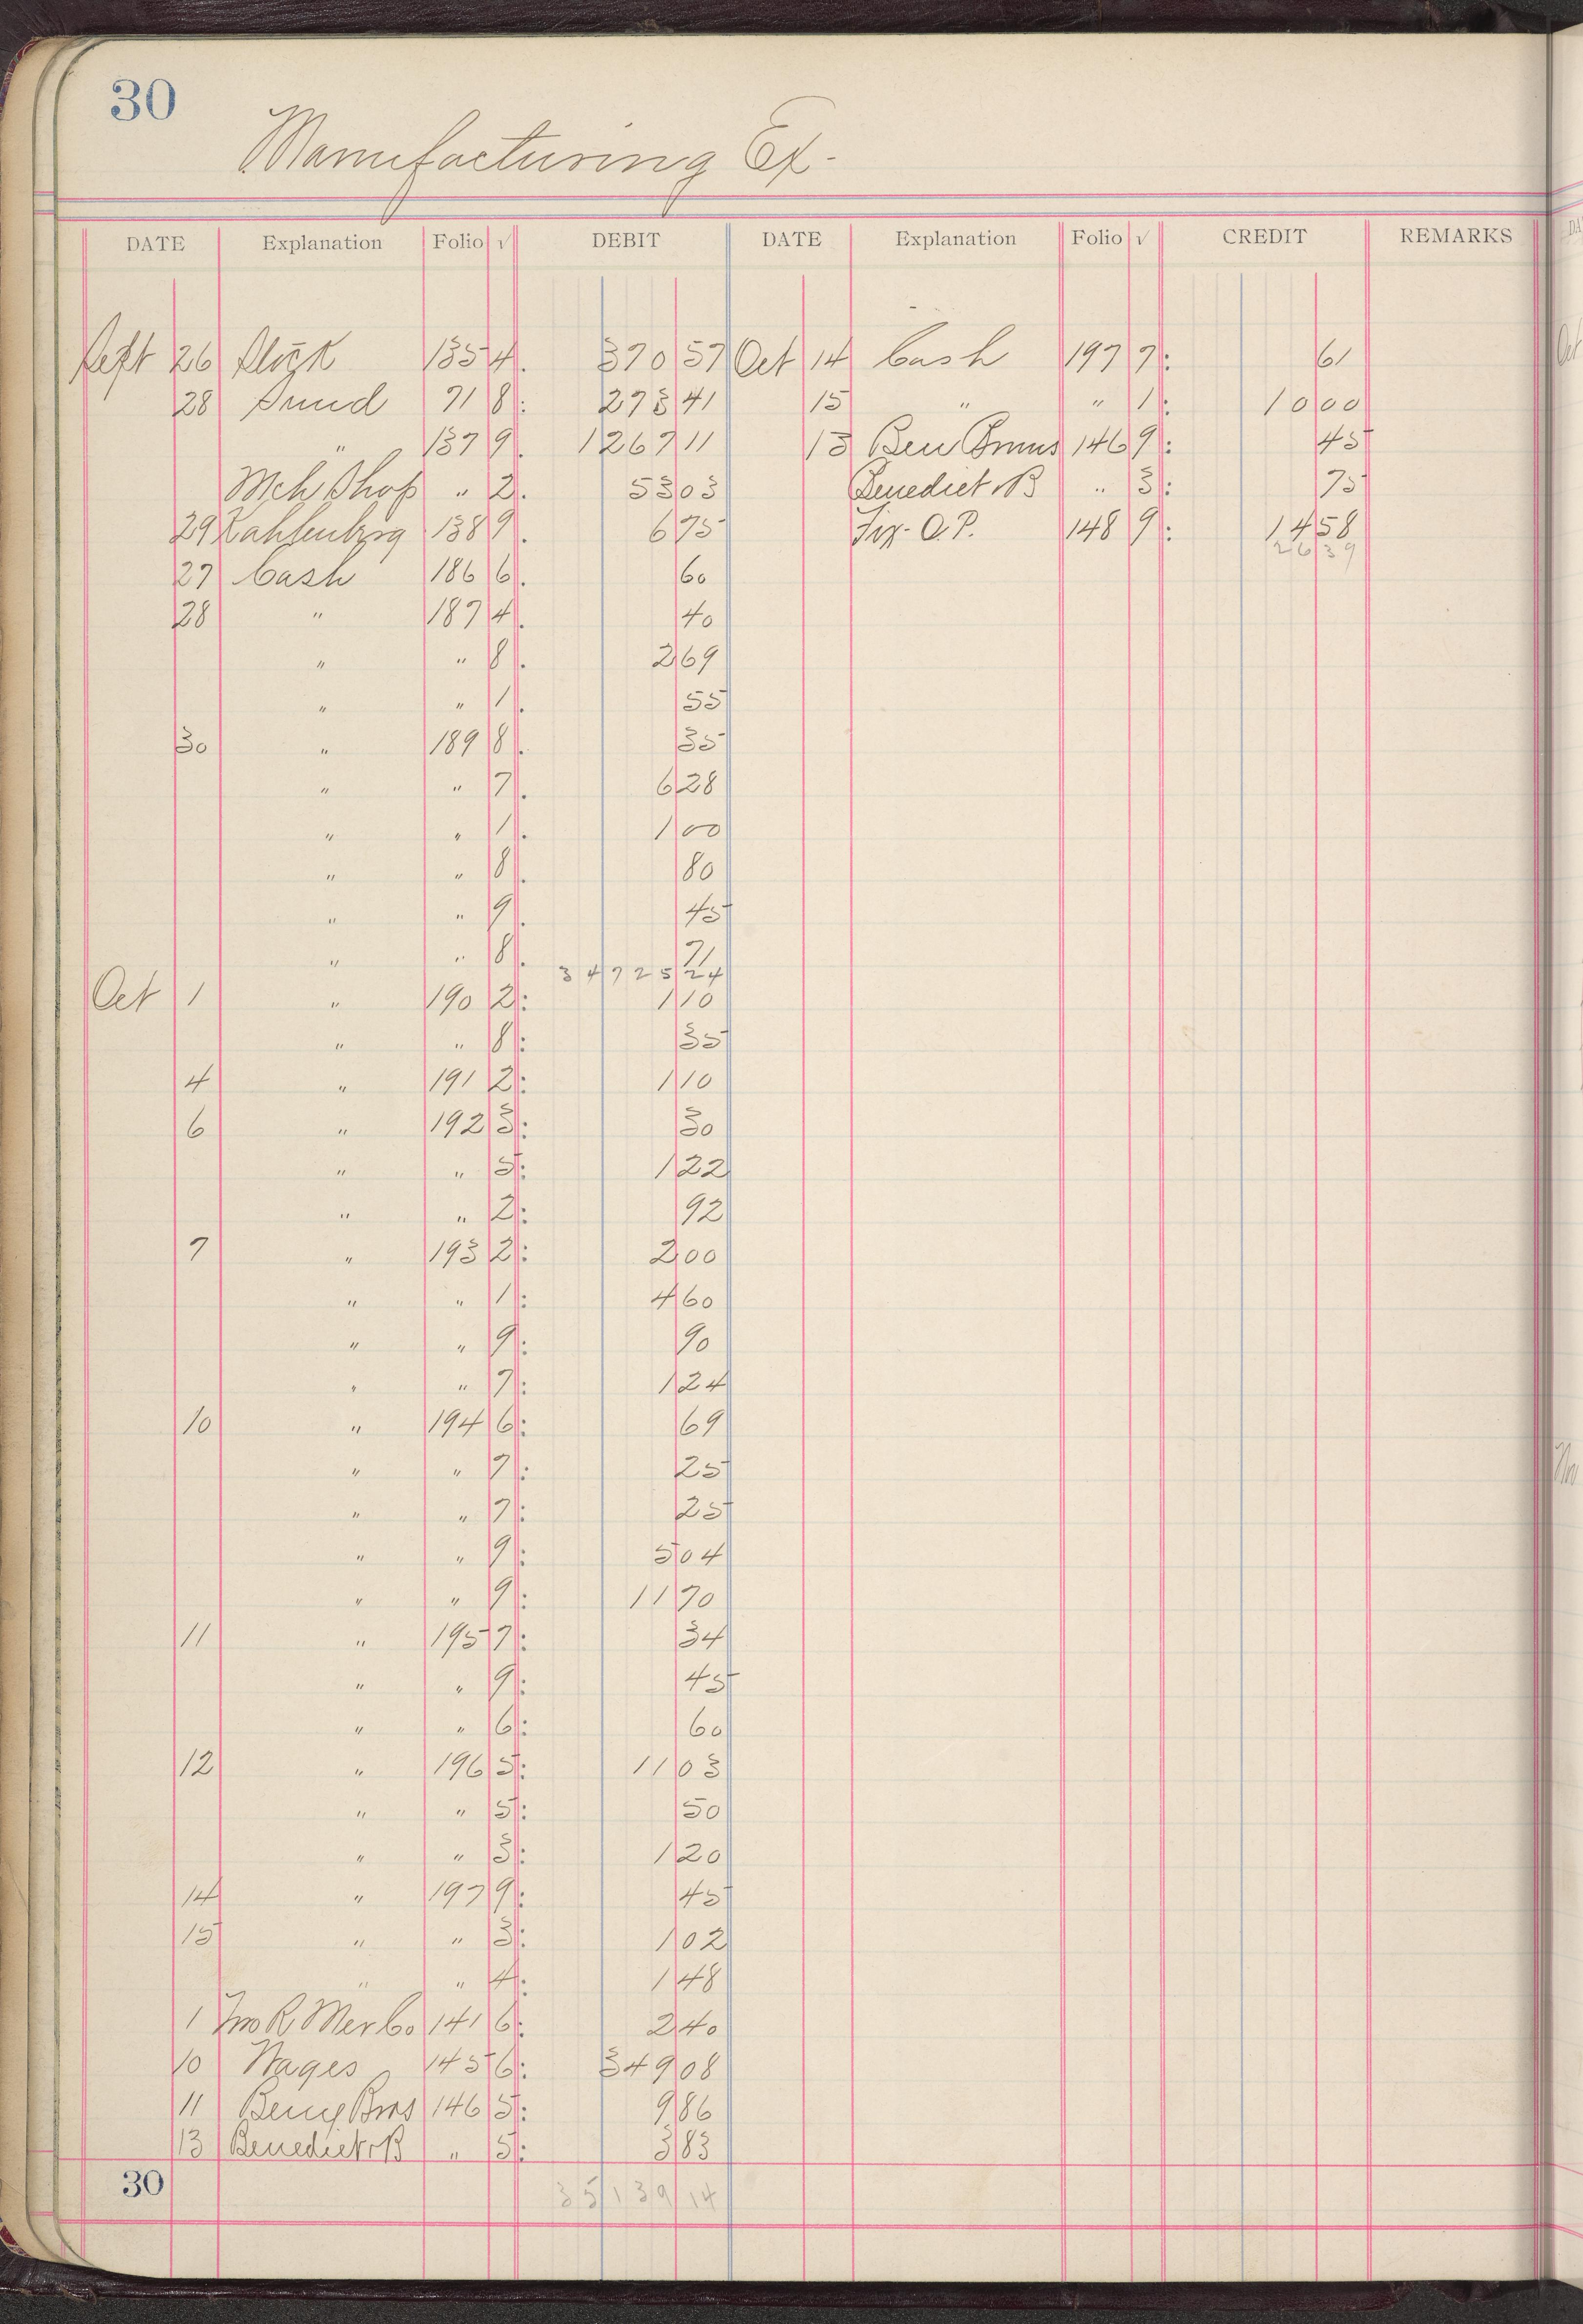 30
Manufacturing Ex-
DATE Explanation Folio √ DEBIT DATE Explanation Folio √ CREDIT REMARKS
Sept 26 135 4 370 57 Oct 14 Cash 197 7 61
28 Sund 71 8 273 41 15 " " 1 10 00
" 137 9 1267 11 13 Ben 146 9 45
Mch Shop " 2 53 03 Benedict & B " 3 75
29 138 9 6 75 O.P. 148 9 14 58
26 39
27 Cash 186 6 60
28 " 187 4 40
" " 8 2 69
" " 1 55
30 " 189 8 35
" " 7 6 28
" " 1 1 00
" " 8 80
" " 9 45
" " 8 71
34725 24
Oct 1 " 190 2 1 10
" " 8 35
4 " 191 2 1 10
6 " 192 3 30
" " 5 1 22
" " 2 92
7 " 193 2 2 00
" " 1 4 60
" " 9 90
" " 7 1 24
10 " 194 6 69
" " 7 25
" " 7 25
" " 9 5 04
" " 9 11 70
11 " 195 7 34
" " 9 45
" " 6 60
12 " 196 5 11 03
" " 5 50
" " 3 1 20
14 " 197 9 45
15 " " 3 1 02
" " 4 1 48
1 Mer Co 141 6 2 40
10 Wages 145 6 349 08
11 Bros 146 5 9 86
13 Benedict & B " 5 3 83
30 35139 14